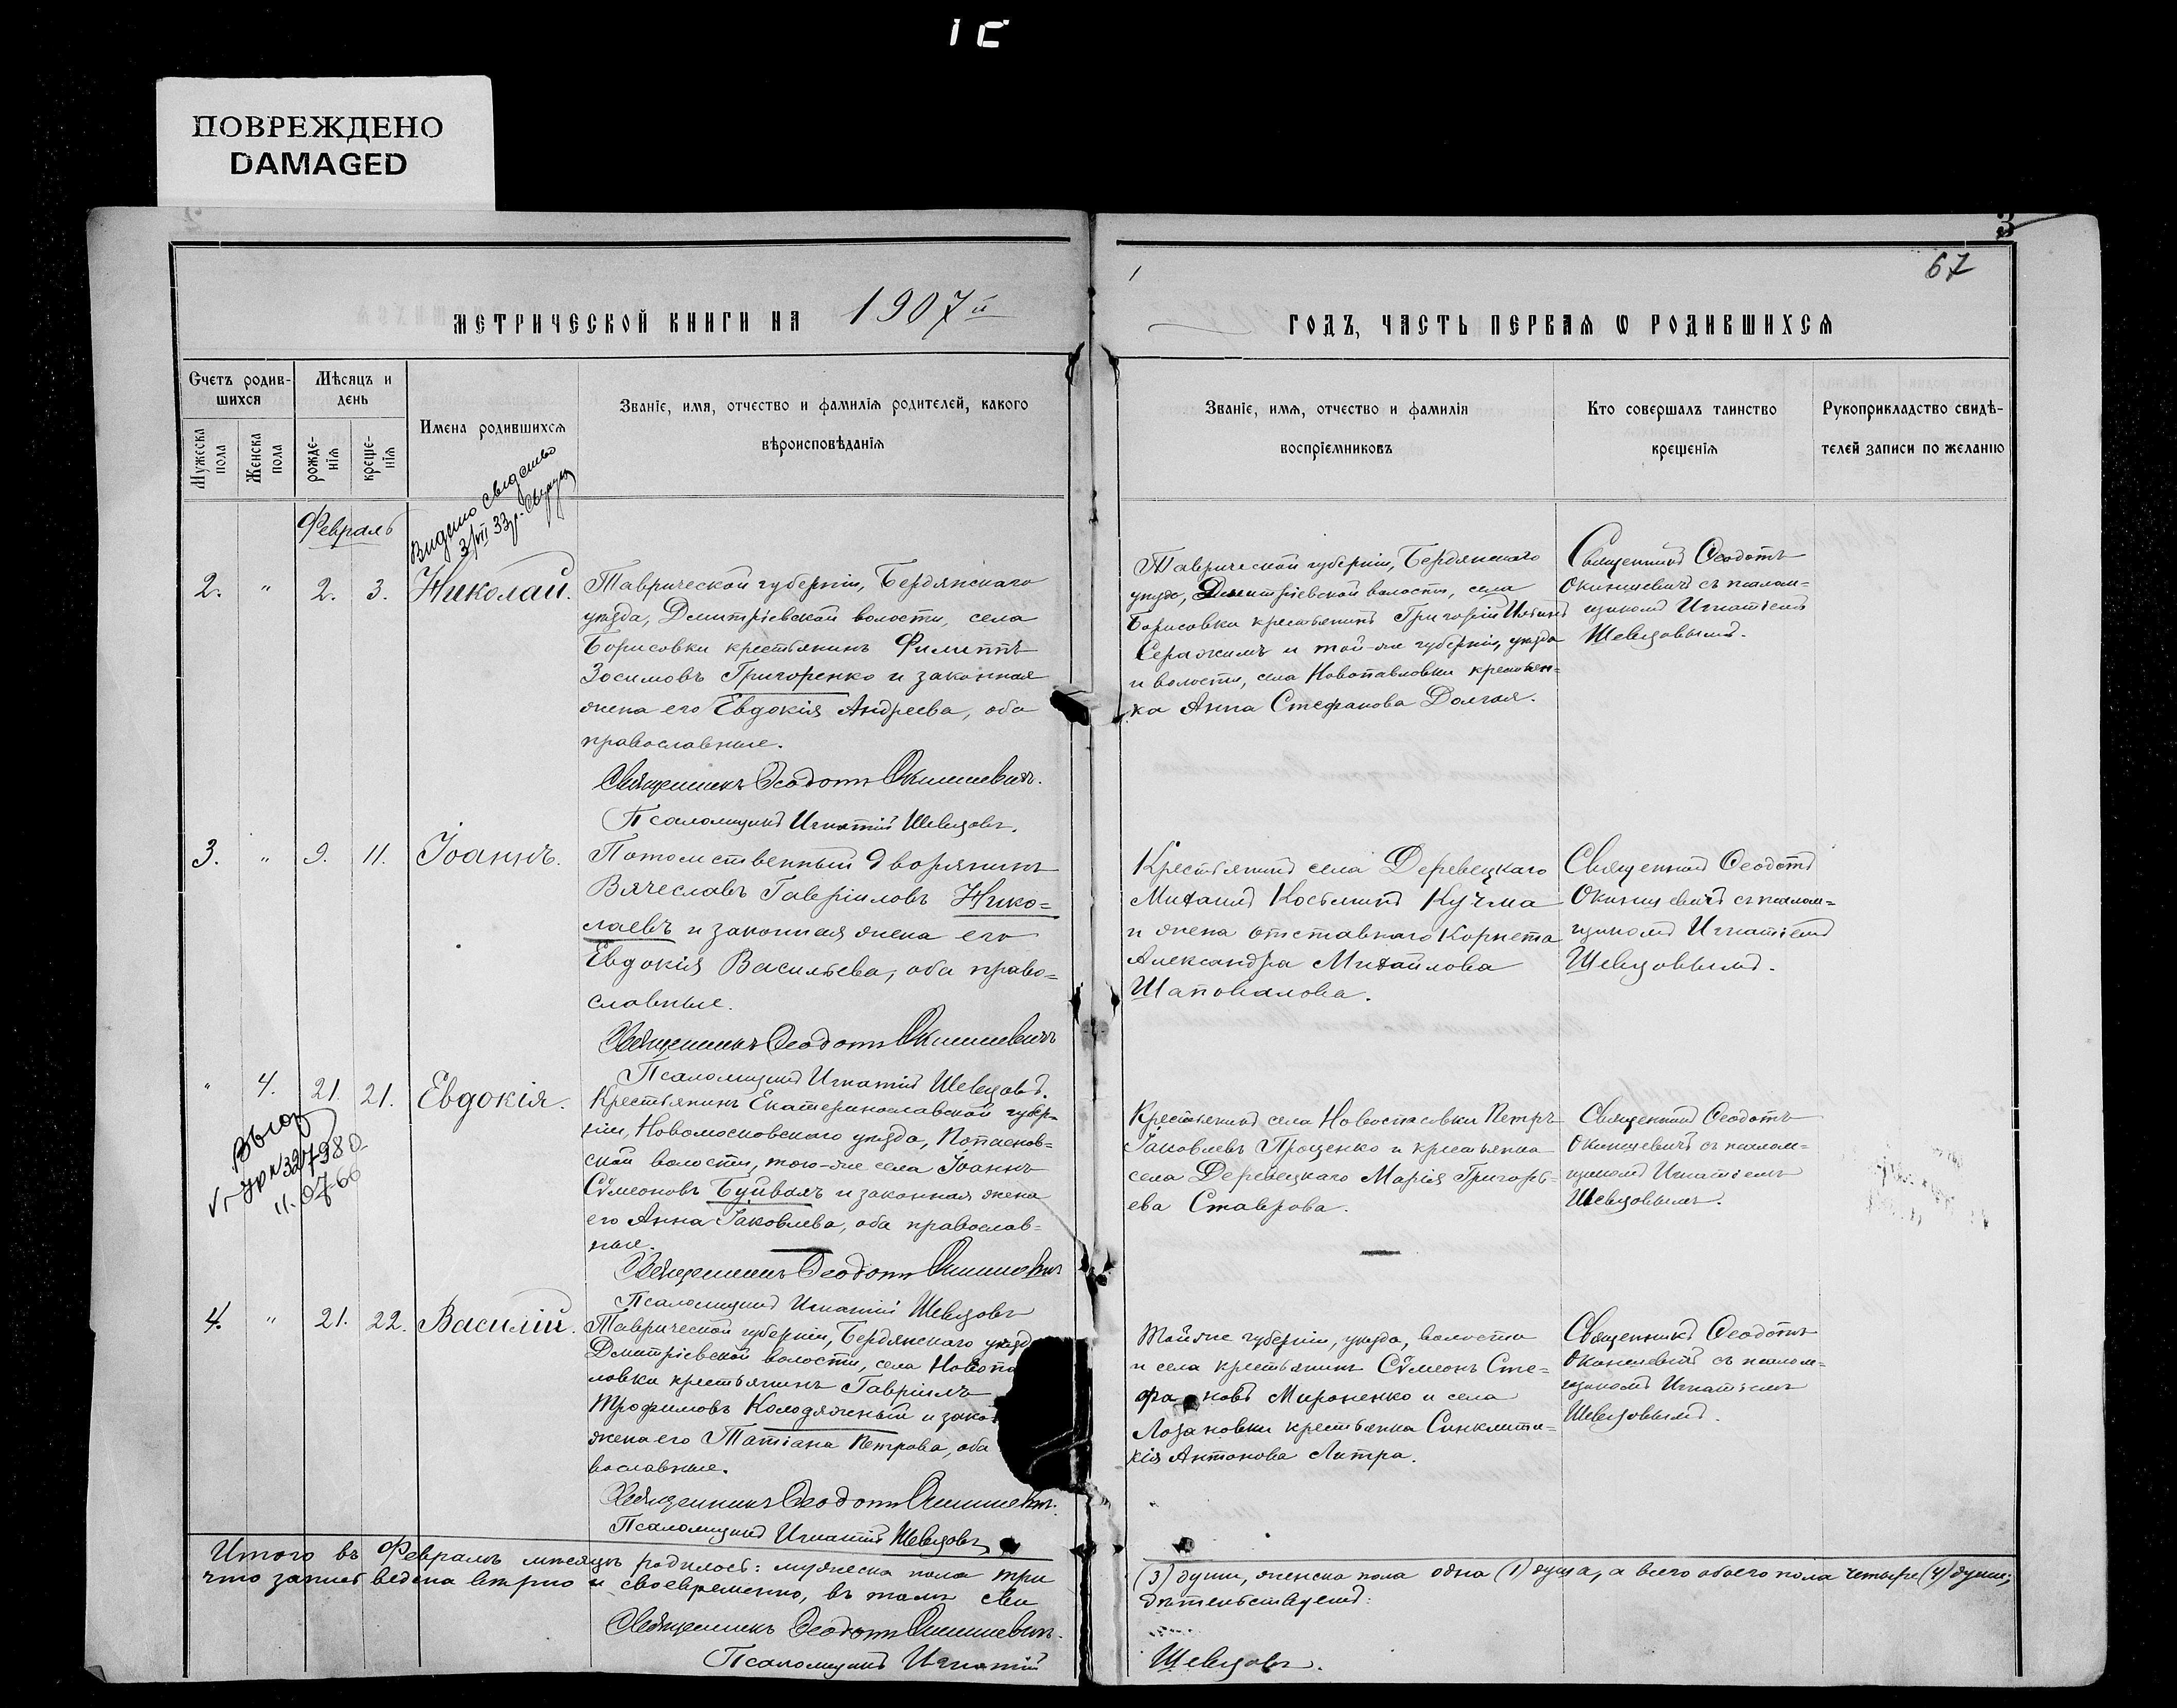 1C
ПОВРЕЖДЕНО
DAMAGED
3
67
МЕТРИЧЕСКОЙ КНИГИ НА 1907й
ГОДЪ, ЧАСТЬ ПЕРВАЯ Ѡ РОДИВШИХСЯ
Счетъ родив-
шихся
Мѣсяцъ и
день
Мужеска
пола
Женска
пола
рожде-
нія
креще-
нія
Имена родившихся
Званіе, имя, отчество и фамилія родителей, какого
вѣроисповѣданія
Званіе, имя, отчество и фамилія
воспріемниковъ
Кто совершалъ таинство
крещенія
Рукоприкладство свидѣ-
телей записи по желанію
Февраль
3/VII 33г.
2. " 2. 3. Николай.
Таврической губерніи, Бердянскаго
уѣзда, Дмитріевской волости, села
Борисовки крестьянинъ Филиппъ
Зосимовъ Григоренко и законная
жена его Евдокія Андреева, оба
православные.
Священникъ Ѳеодотъ Окиншевичъ.
Псаломщикъ Игнатій Шевцовъ.
Таврической губерніи, Бердянскаго
уѣзда, Дмитріевской волости, села
Борисовки крестьянинъ Григорій
и той-же губерніи, уѣзда
и волости, села Новопавловки крестьян-
ка Анна Стефанова Долгая.
Священникъ Ѳеодотъ
Окиншевичъ съ псалом-
щикомъ Игнатіемъ
Шевцовымъ.
3. " 9. 11. Іоаннъ.
Потомственный дворянинъ
Вячеславъ Гавріиловъ Нико=
лаевъ и законная жена его
Евдокія Васильева, оба право=
славные.
Священникъ Ѳеодотъ Окиншевичъ
Псаломщикъ Игнатій Шевцовъ.
Крестьянинъ села Деревецкаго
Михаилъ Косьминъ Кучма
и жена отставнаго Корнета
Александра Михайлова
Шаповалова.
Священникъ Ѳеодотъ
Окиншевичъ съ псалом=
щикомъ Игнатіемъ
Шевцовымъ.
" 4. 21. 21. Евдокія.
11.07.66
Крестьянинъ Екатеринославской губер-
ніи, Новомосковскаго уѣзда, Попаснов-
ской волости, того-же села Іоаннъ
Сѵмеоновъ Буйвалъ и законная жена
его Анна Іаковлева, оба православ=
ные.
Священникъ Ѳеодотъ Окиншевичъ
Псаломщикъ Игнатій Шевцовъ
Крестьянинъ села Новоспасовки Петръ
Іаковлевъ Проценко и крестьянка
села Деревецкаго Марія Григорь-
ева Ставрова.
Священникъ Ѳеодотъ
Окиншевичъ съ псалом-
щикомъ Игнатіемъ
Шевцовымъ.
4. " 21. 22. Василій.
Таврической губерніи, Бердянскаго уѣзд
Дмитріевской волости, села Новопа
ловки крестьянинъ Гавріилъ
Трофимовъ Колодяжный и зако
жена его Татіана Петрова, оба
вославные.
Священникъ Ѳеодотъ Окиншевичъ.
Псаломщикъ Игнатій Шевцовъ
Той же губерніи, уѣзда, волости
и села крестьянинъ Сѵмеонъ Сте=
фановъ Мироненко и села
Лозановки крестьянка Синклити=
кія Антонова Литра.
Священникъ Ѳеодотъ
Окиншевичъ съ псалом=
щикомъ Игнатіемъ
Шевцовымъ.
Итого въ Февралѣ мѣсяцѣ родилось: мужеска пола три
(3) души, женска пола одна (1) душа, а всего обоего пола четыре (4) души;
что запись ведена вѣрно и своевременно, въ томъ сви
дѣтельствуемъ:
Священникъ Ѳеодотъ Окиншевичъ.
Псаломщикъ Игнатій
Шевцовъ.